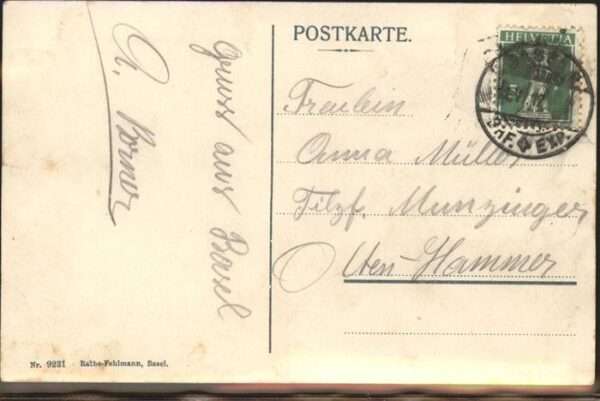 POSTKARTE.
HELVETIA
Gruss aus Basel
A. Borner
Fräulein
Anna Müller
Filzf. Munzinger
Olten-Hammer
BHF. EXP.
Nr. 9221 Rathe-Fehlmann, Basel.